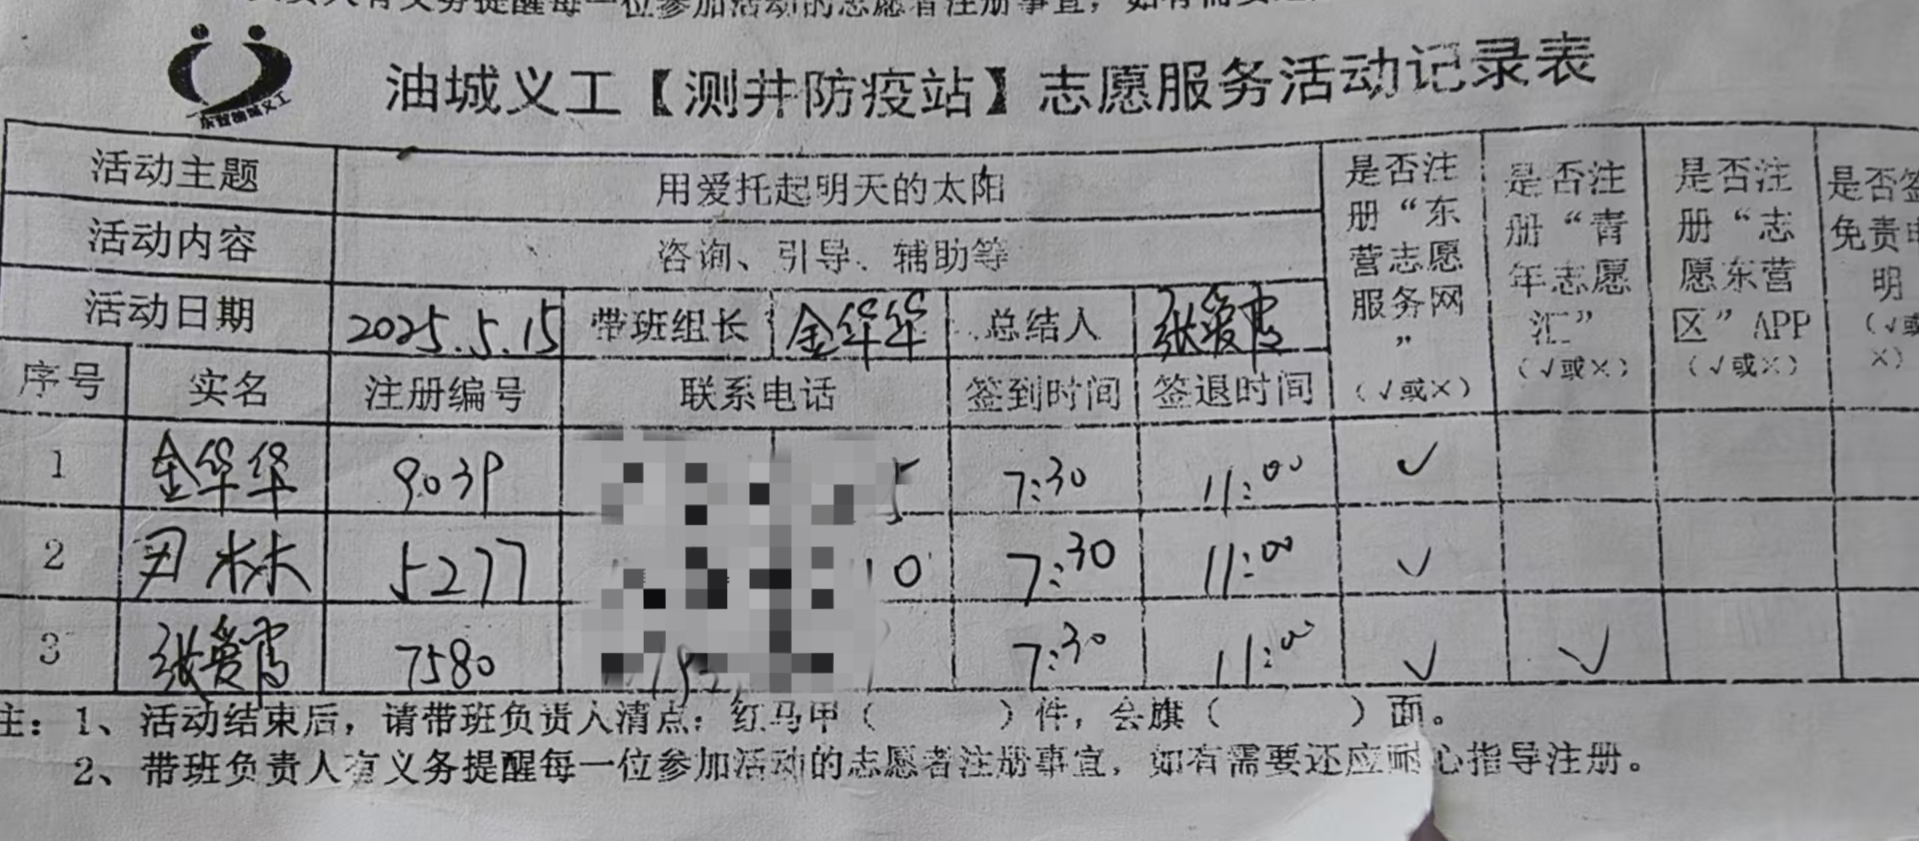 负责人有义务提醒每一位参加活动的志愿者注册事宜，如有需要
东营油城义工
油城义工【测井防疫站】志愿服务活动记录表
活动主题 用爱托起明天的太阳 是否注册“东营志愿服务网”（√或×） 是否注册“青年志愿汇”（√或×） 是否注册“志愿东营区”APP（√或×） 是否签免责申明（√或×）
活动内容 咨询、引导、辅助等
活动日期 2025.5.15 带班组长 金华华 总结人 张爱霞
序号 实名 注册编号 联系电话 签到时间 签退时间
1 金华华 9039 5 7:30 11:00 ✓
2 尹林 5277 10 7:30 11:00 ✓
3 张爱霞 7580 7:30 11:00 ✓ ✓
注：1、活动结束后，请带班负责人清点：红马甲（ ）件，会旗（ ）面。
2、带班负责人有义务提醒每一位参加活动的志愿者注册事宜，如有需要还应耐心指导注册。